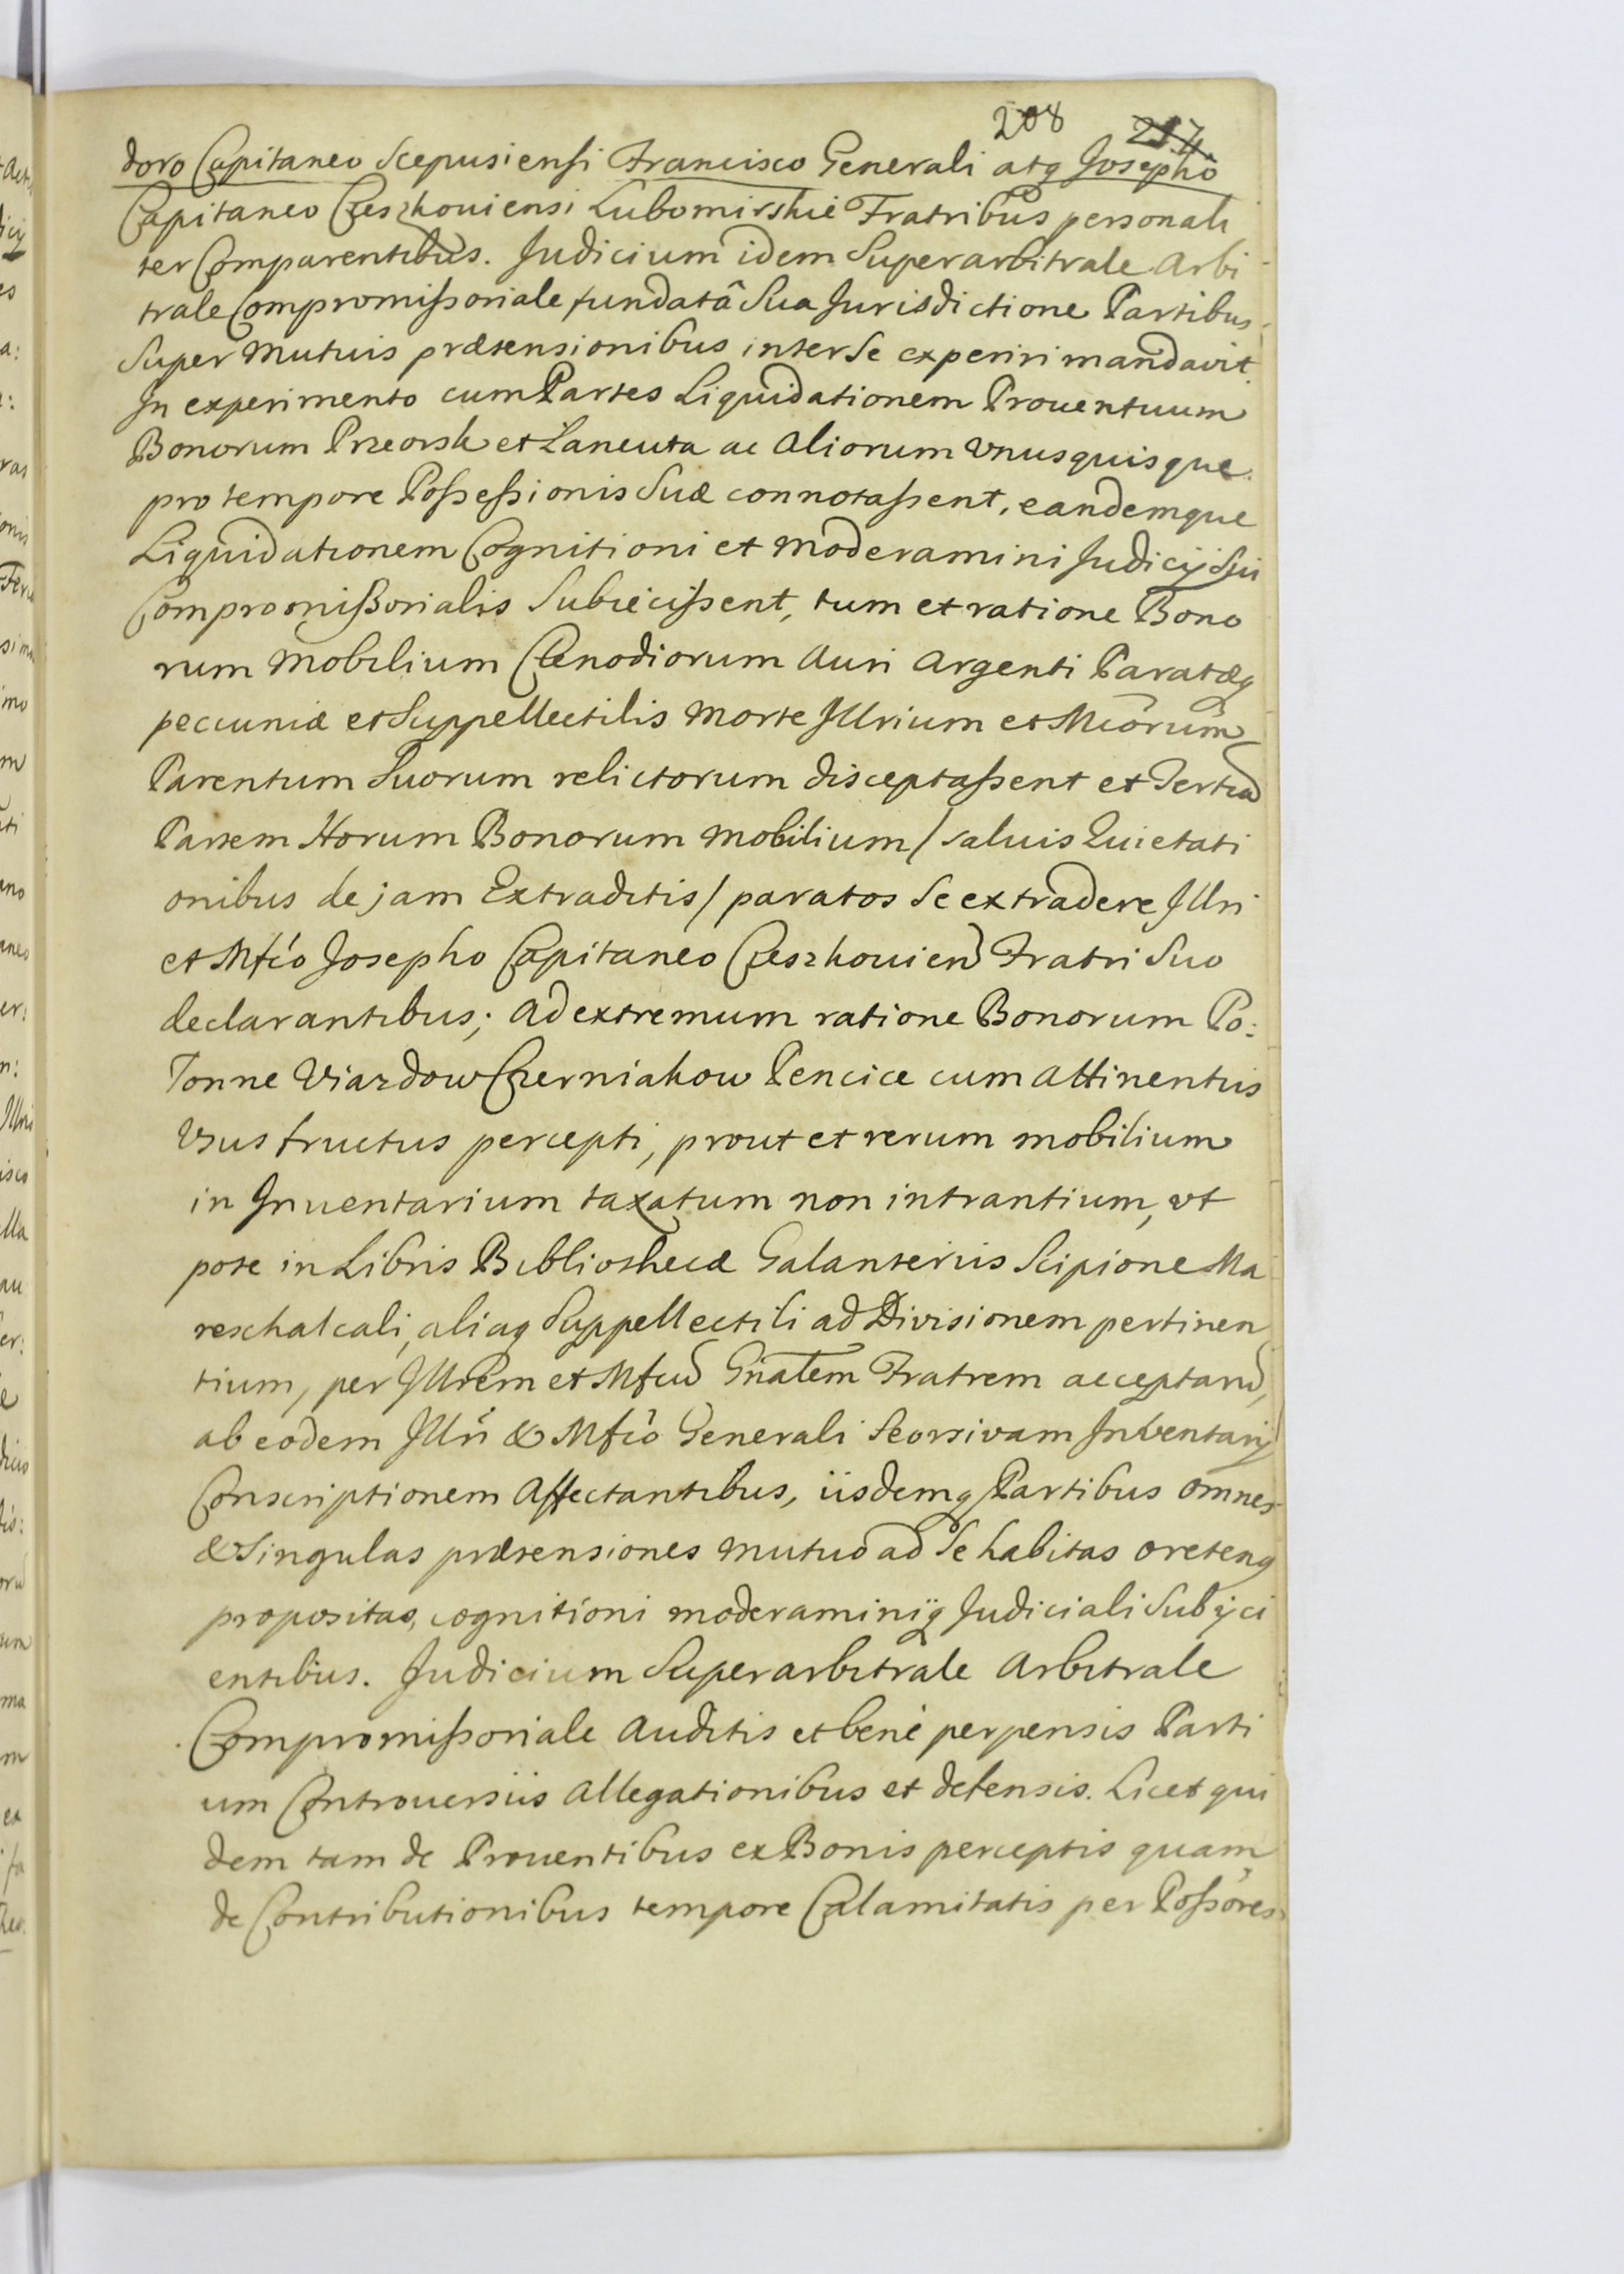 208 217.
doro Capitaneo Scepusiensi Francisco Generali atq Josepho
Capitaneo Czeszkouiensi Lubomirskie Fratribus personali
ter Comparentibus. Judicium idem Superarbitrale Arbi
trale Compromissoriale fundatâ Sua Jurisdictione Partibus
Super Mutuis prætensionibus inter Se experiri mandavit.
In experimento cum Partes Liquidationem Prouentuum
Bonorum Przeorsk et Lancuta ac Aliorum Vnusquisque
pro tempore Possessionis Suæ connotassent, eandemque
Liquidationem Cognitioni et Moderamini Judicij Sui
Compromissorialis Subiecissent, tum et ratione Bono
rum Mobilium Clenodiorum Auri Argenti Paratæq
pecuniæ et Suppellectilis Morte Illrium et Mcorum
Parentum Suorum relictorum disceptassent et Tertiã
Partem Horum Bonorum Mobilium / saluis Quietati
onibus de jam Extraditis / paratos Se extradere Illri
et Mfco Josepho Capitaneo Czeszkouien Fratri Suo
declarantibus; Ad extremum ratione Bonorum Po:
Tonne Uiazdow Czerniakow Pencice cum Attinentiis
Vsus fructus percepti, prout et rerum mobilium
in Inuentarium taxatum non intrantium, vt
pote in Libris Bibliothecæ Galanteriis Scipione Ma
reschalcali, aliaq Suppellectili ad Divisionem pertinen
tium, per Illrem et Mfcũ Gnãlem Fratrem acceptarũ,
ab eodem Illri & Mfco Generali Seorsivam Inventarij
Conscriptionem Affectantibus, iisdemq Partibus Omnes
& Singulas prætensiones Mutuo ad Se habitas oretenq
propositas, cognitioni moderaminiq Judiciali Subijci
entibus. Judicium Superarbitrale Arbitrale
Compromissoriale Auditis et bene perpensis Parti
um Controuersiis Allegationibus et defensis. Licet qui
dem tam de Prouentibus ex Bonis perceptis quam
de Contributionibus tempore Calamitatis per Possores